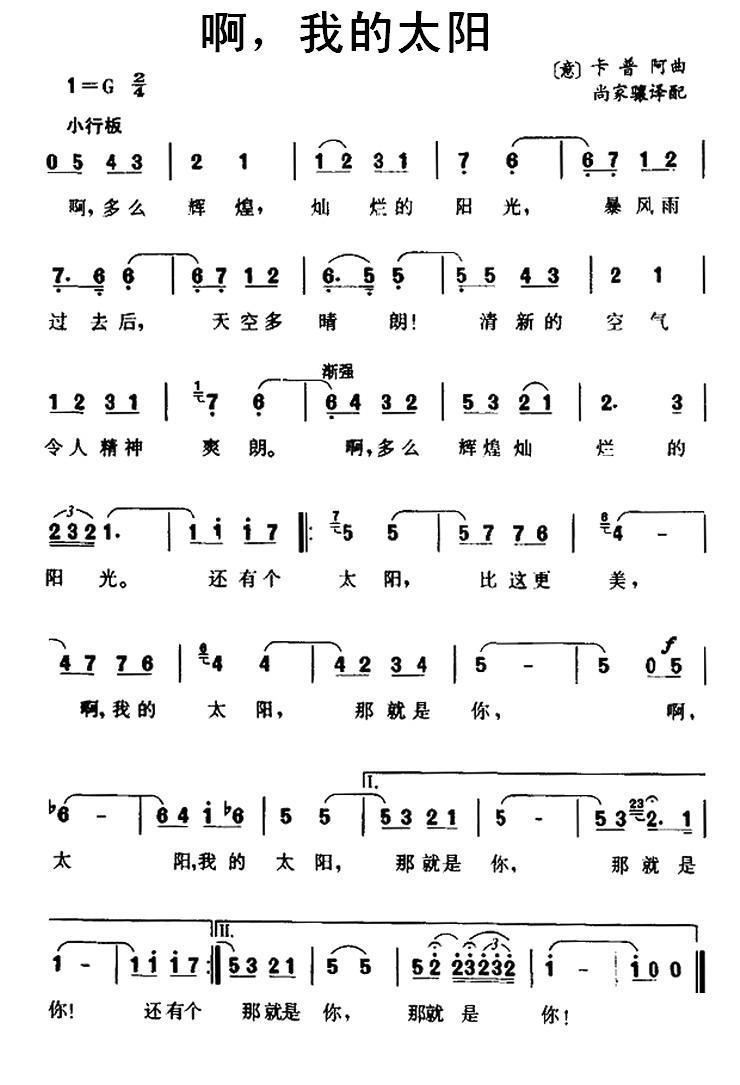 啊，我的太阳
1=G 2/4
〔意〕卡普阿曲
尚家骧译配
小行板
0 5 4 3 | 2 1 | 1 2 3 1 | 7 6 | 6 7 1 2 |
啊,多么 辉 煌, 灿 烂的 阳 光, 暴风雨
7. 6 6 | 6 7 1 2 | 6. 5 5 | 5 5 4 3 | 2 1 |
过去后, 天空多 晴 朗! 清新的 空 气
渐强
1 2 3 1 | 1 7 6 | 6 4 3 2 | 5 3 2 1 | 2. 3 |
令人精神 爽 朗。 啊,多么 辉煌灿 烂 的
3
2 3 2 1. | 1 1 1 7 |: 7 5 5 | 5 7 7 6 | 6 4 - |
阳 光。 还有个 太 阳, 比这更 美,
f
4 7 7 6 | 6 4 4 | 4 2 3 4 | 5 - | 5 0 5 |
啊,我的 太 阳, 那就是 你, 啊,
I.
♭6 - | 6 4 1 ♭6 | 5 5 | 5 3 2 1 | 5 - | 5 3 23 2. 1 |
太 阳,我的 太 阳, 那就是 你, 那就是
II.
3
1 - | 1 1 1 7 :| 5 3 2 1 | 5 5 | 5 2 2 3 2 3 2 | 1 - | 1 0 0 |
你! 还有个 那就是 你, 那就 是 你!